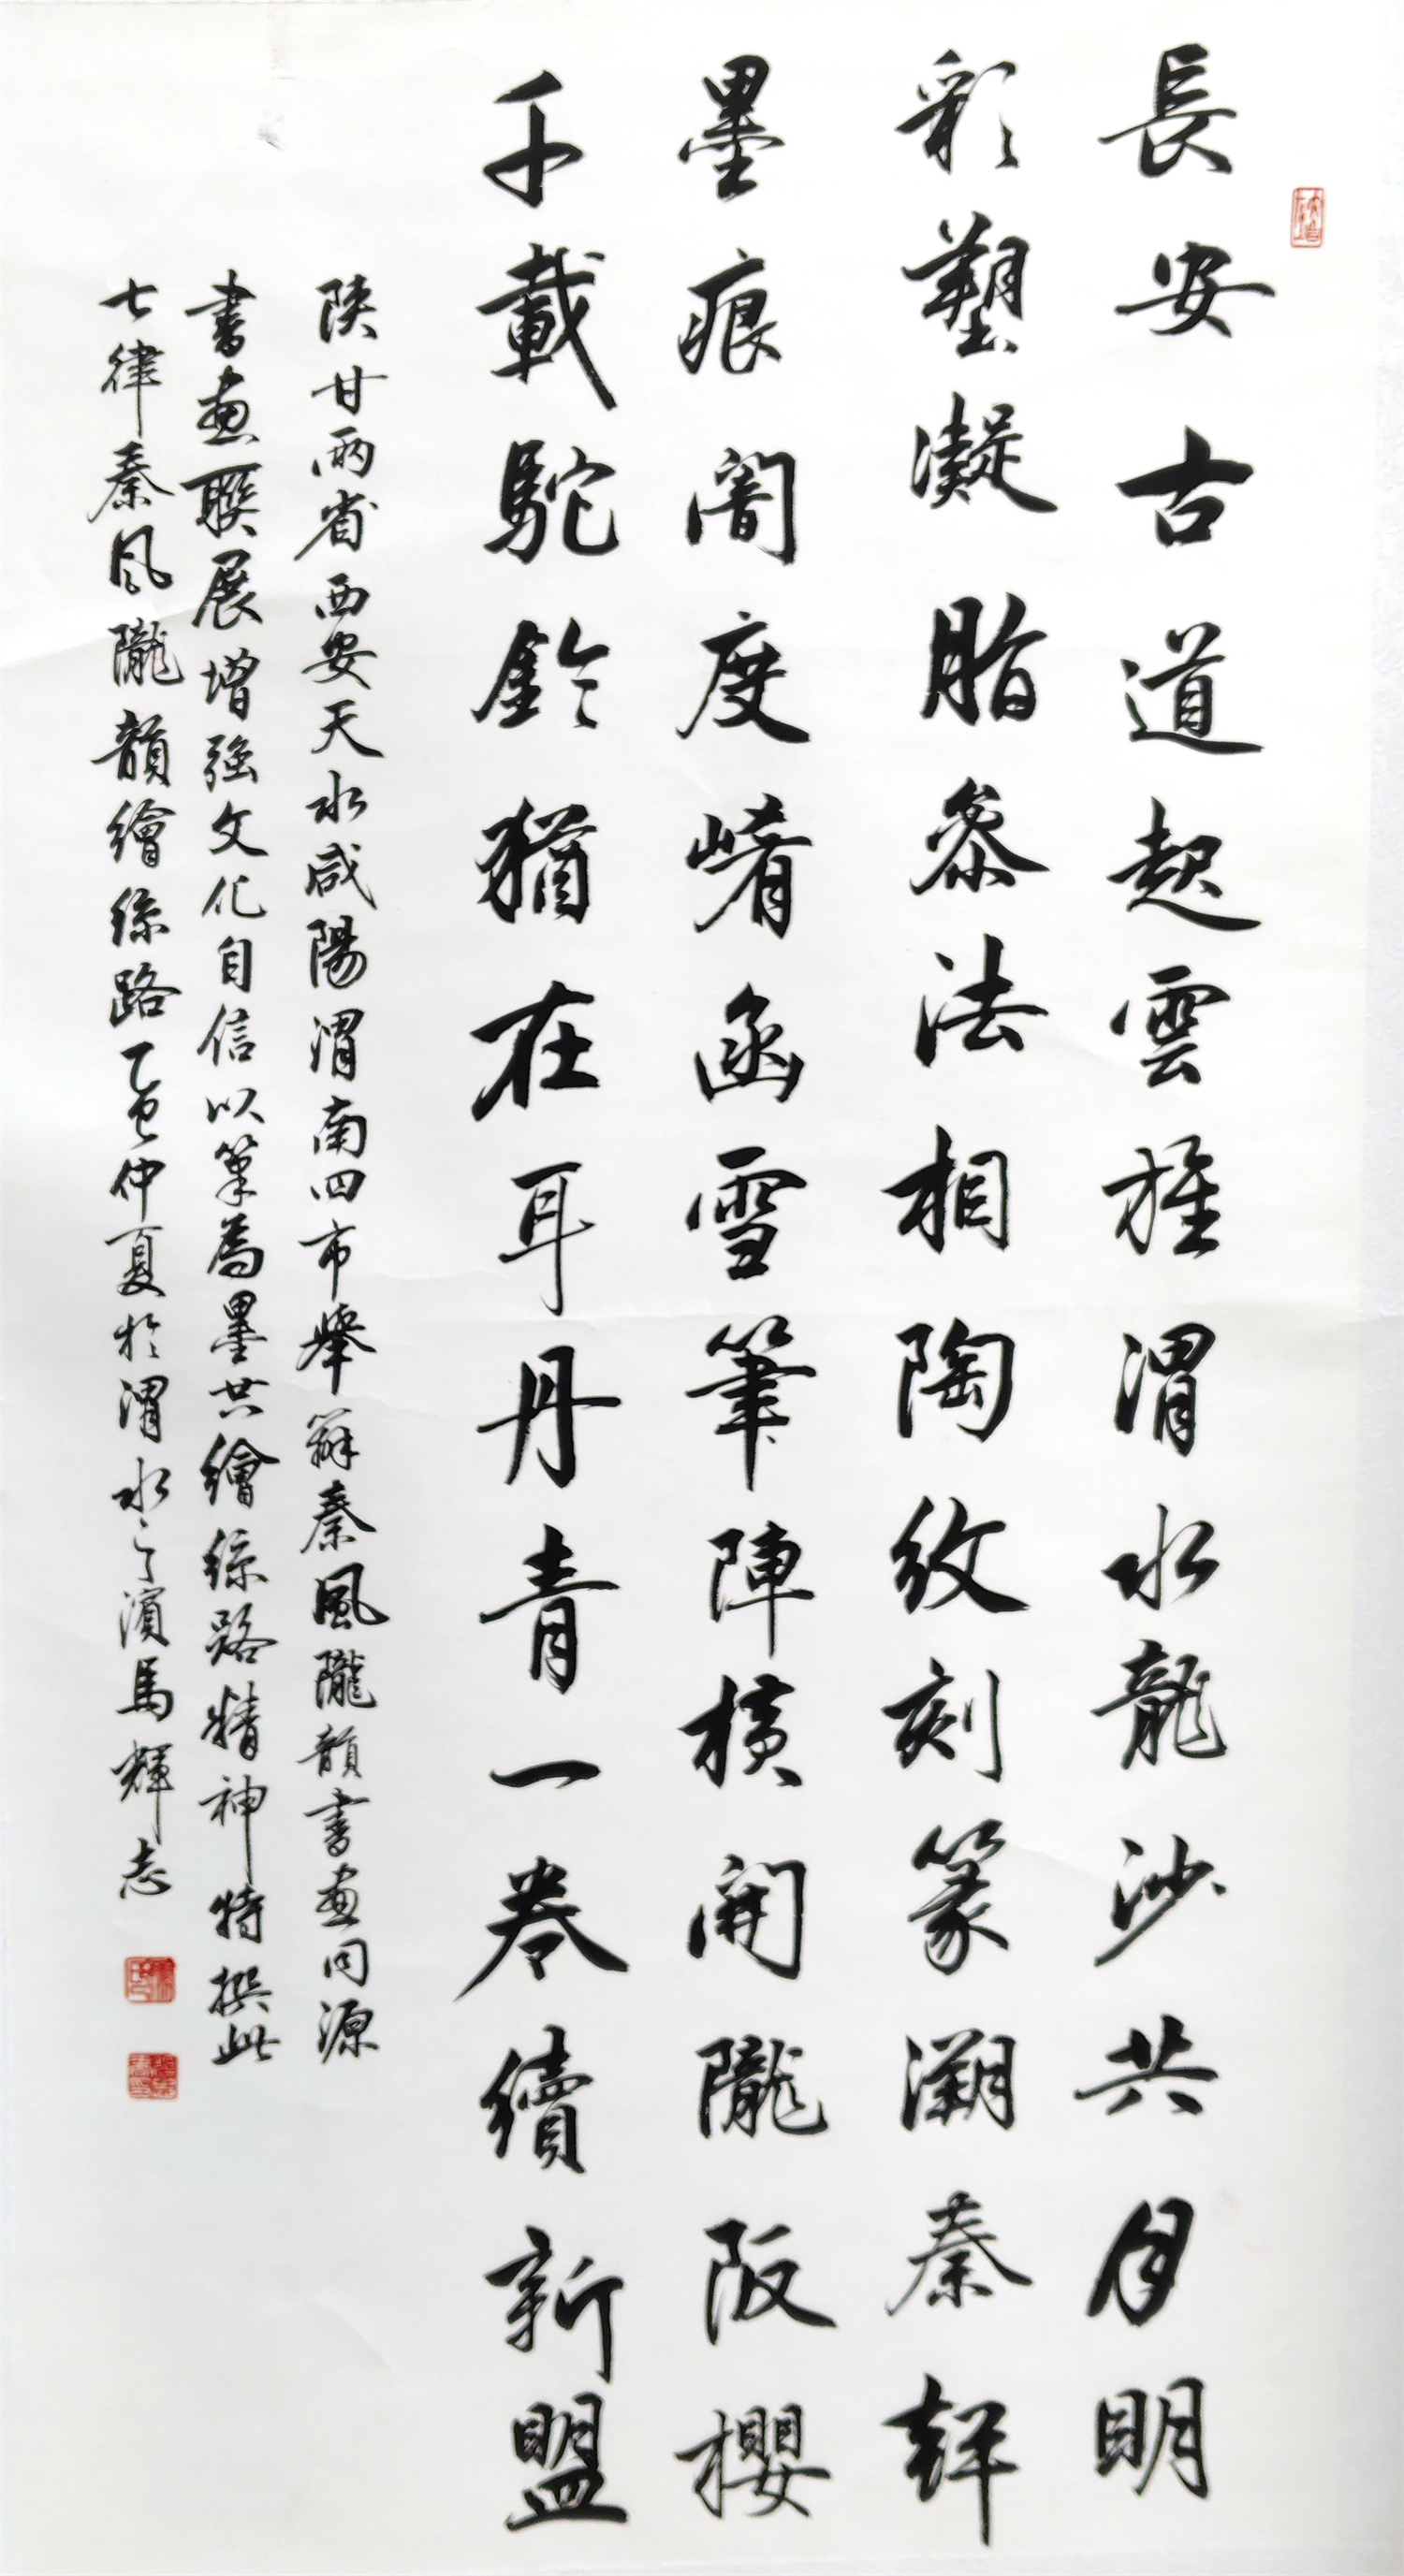 長安古道起雲旌渭水龍沙共月明
彩塑凝脂參法相陶紋刻篆溯秦鉦
墨痕闇度崤函雪筆陣橫開隴阪櫻
千載駝鈴猶在耳丹青一卷續新盟
陝甘兩省西安天水咸陽渭南四市舉辦秦風隴韻書畫同源
書畫聯展增強文化自信以筆為墨共繪絲路精神特撰此
七律秦风隴韻繪絲路乙巳仲夏於渭水之濱馬輝志